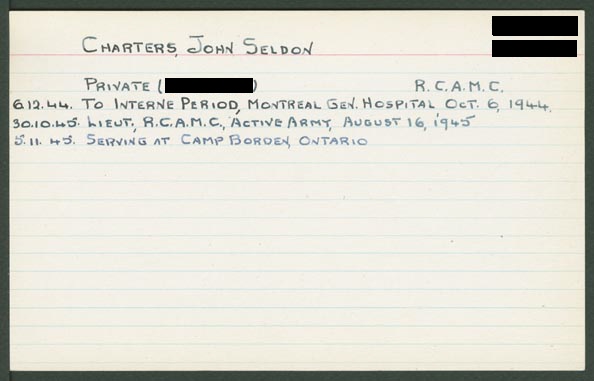 CHARTERS, JOHN SELDON
PRIVATE ( ) R.C.A.M.C.
6.12.44. TO INTERNE PERIOD, MONTREAL GEN. HOSPITAL OCT. 6, 1944.
30.10.45. LIEUT., R.C.A.M.C., ACTIVE ARMY, AUGUST 16, 1945
5.11.45. SERVING AT CAMP BORDEN, ONTARIO